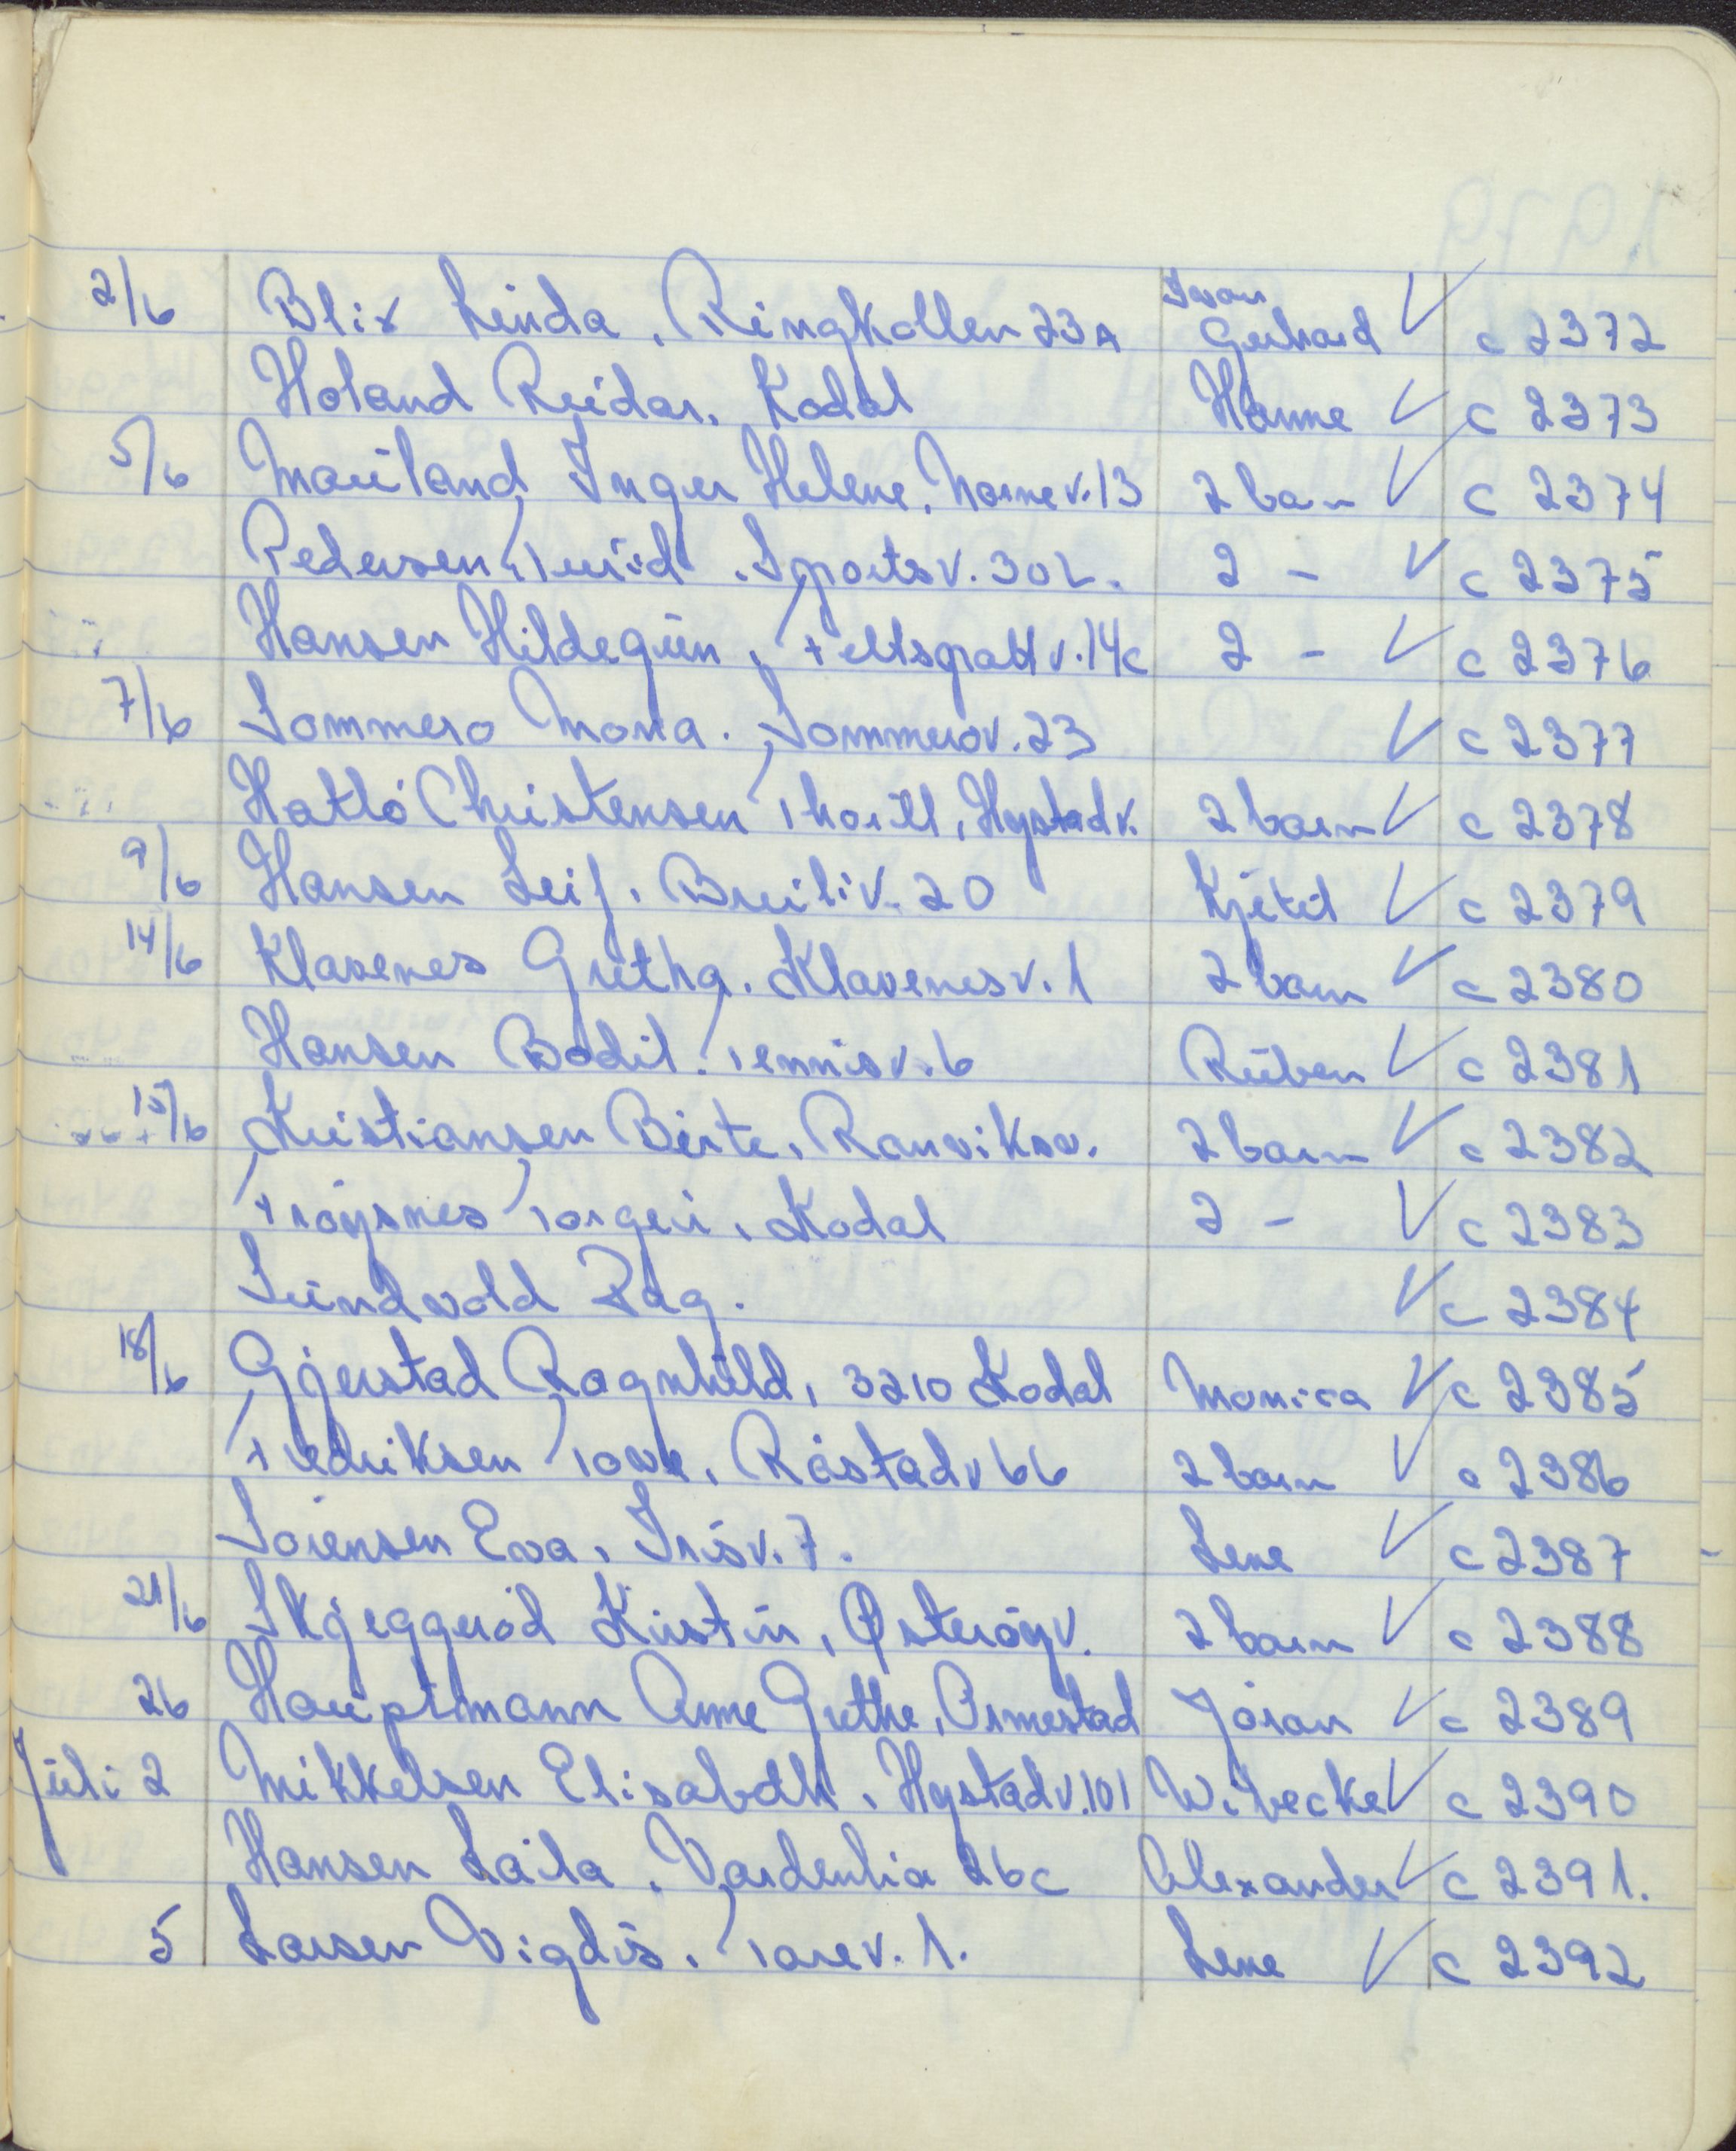 2/6 Blix Linda, Ringkollen 23A Ivar Gerhard ✓ c 2372
Holand Reidar, Kodal Hanne ✓ c 2373
5/6 Mauland Inger Helene, Nornev. 13 2 barn ✓ c 2374
Pedersen, Turid. Sportsv. 30L. 2 - ✓ c 2375
Hansen Hildegunn, Feltspattv. 14c 2 - ✓ c 2376
7/6 Sommero Mona. Sommerov. 23 ✓ c 2377
Hatlö Christensen Thorill, Hystadv. 2 barn ✓ c 2378
9/6 Hansen Leif. Breiliv. 20 Kjetil ✓ c 2379
14/6 Klavenes Grethe. Klavenesv. 1 2 barn ✓ c 2380
Hansen Bodil. Tennisv. 6 Ruben ✓ c 2381
15/6 Kristiansen Birte, Ranviksv. 2 barn ✓ c 2382
Fröysnes Torgeir, Kodal 2 - ✓ c 2383
Sundvold Dag. ✓ c 2384
18/6 Gjerstad Ragnhild, 3210 Kodal Monica ✓ c 2385
Fredriksen Tove, Råstadv 66 2 barn ✓ c 2386
Sörensen Eva, Irisv. 7. Lene ✓ c 2387
21/6 Skjeggeröd Kirstin, Østeröyv. 2 barn ✓ c 2388
26 Hauptmann Anne Grethe, Ormestad Jöran ✓ c 2389
Juli 2 Mikkelsen Elisabeth, Hystadv. 101 Wibecke ✓ c 2390
Hansen Laila, Vardenlia 26c Alexander ✓ c 2391.
5 Larsen Vigdis, Tarev. 1. Lene ✓ c 2392